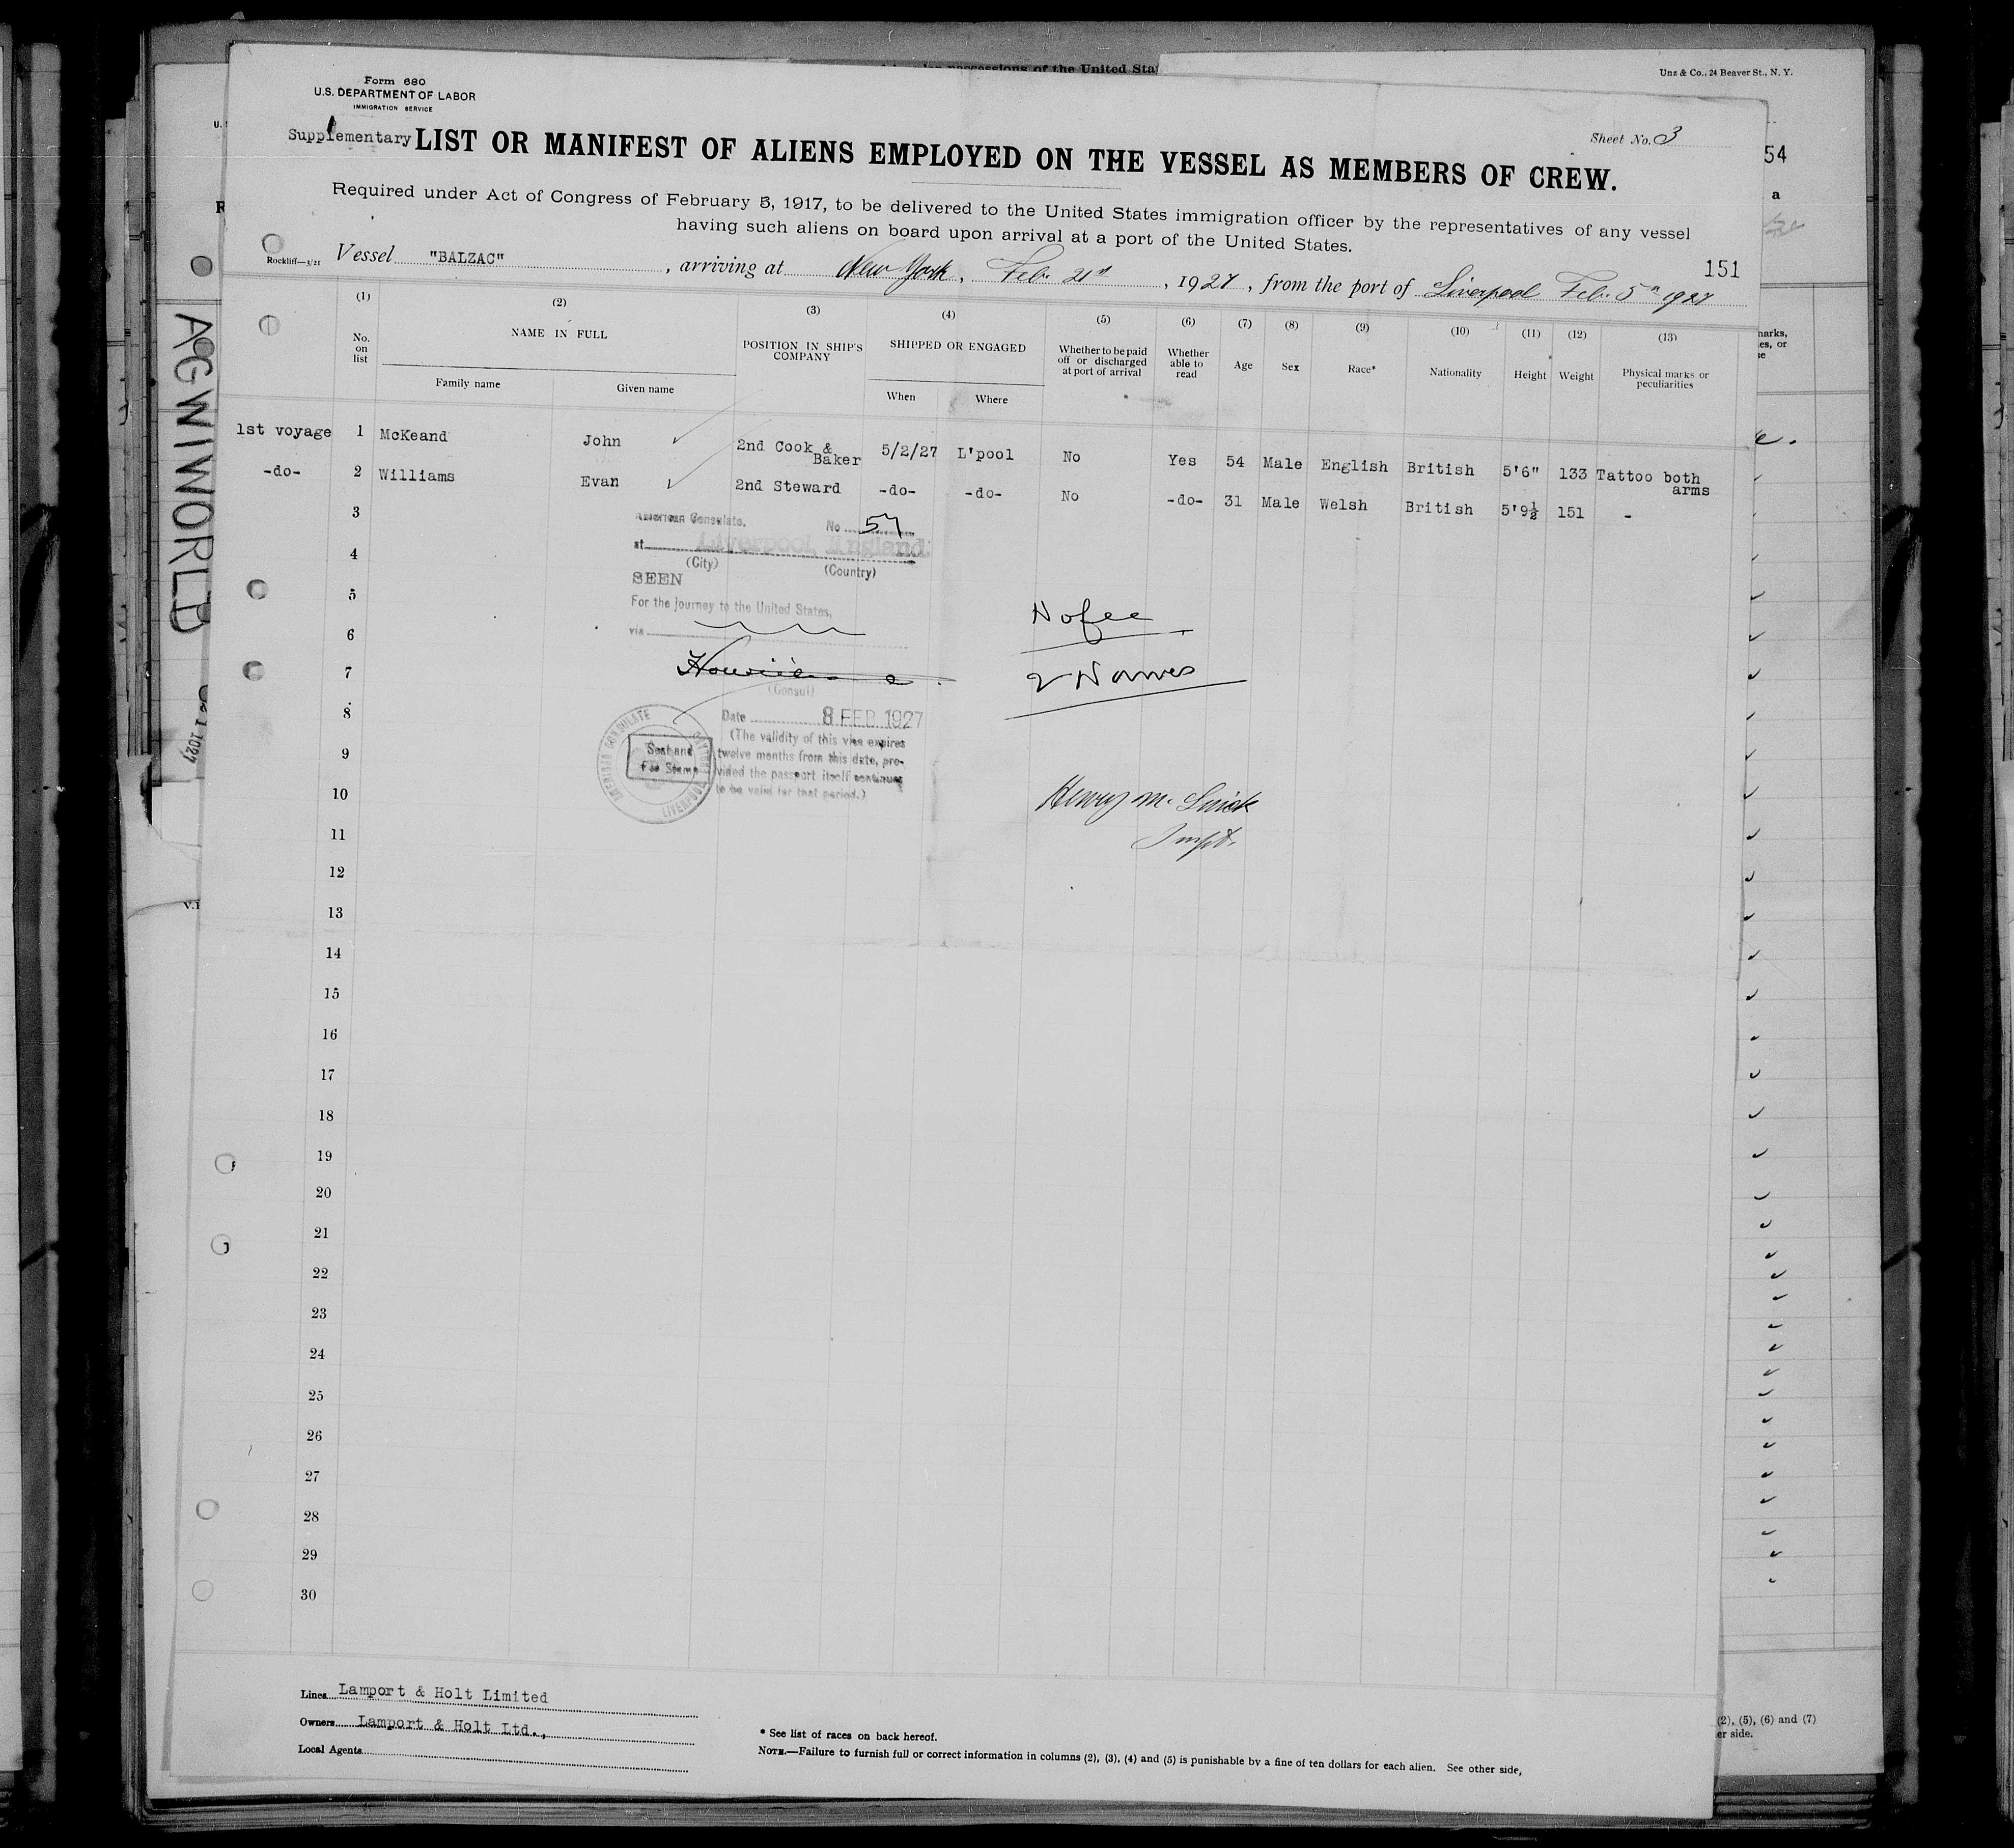 possessions of the United Sta
Unz & Co., 24 Beaver St., N. Y.
Form 680
U.S. DEPARTMENT OF LABOR
IMMIGRATION SERVICE
Sheet No. 3
Supplementary LIST OR MANIFEST OF ALIENS EMPLOYED ON THE VESSEL AS MEMBERS OF CREW.
54
a
Required under Act of Congress of February 5, 1917, to be delivered to the United States immigration officer by the representatives of any vessel
having such aliens on board upon arrival at a port of the United States.
151
Rockliff—3/21
Vessel "BALZAC", arriving at New York, Feb. 21st, 1927, from the port of Liverpool Feb. 5th 1927
(1) (2) (3) (4) (5) (6) (7) (8) (9) (10) (11) (12) (13)
No. on list NAME IN FULL POSITION IN SHIP'S COMPANY SHIPPED OR ENGAGED Whether to be paid off or discharged at port of arrival Whether able to read Age Sex Race* Nationality Height Weight Physical marks or peculiarities
Family name Given name When Where
1st voyage 1 McKeand John 2nd Cook & Baker 5/2/27 L'pool No Yes 54 Male English British 5'6" 133 Tattoo both arms
-do- 2 Williams Evan 2nd Steward -do- -do- No -do- 31 Male Welsh British 5'9½ 151 -
3
4
5
6
7
8
9
10
11
12
13
14
15
16
17
18
19
20
21
22
23
24
25
26
27
28
29
30
American Consulate. No 57
at Liverpool, England
(City) (Country)
SEEN
For the journey to the United States,
via
(Consul)
Date 8 FEB 1927
(The validity of this visa expires
twelve months from this date, pro-
vided the passport itself continues
to be valid for that period.)
AMERICAN CONSULATE
LIVERPOOL
Seal and
Fee Stamp
No fee
2 Names
Henry M.
Inspt.
AGWIWORLD
Lines Lamport & Holt Limited
Owners Lamport & Holt Ltd.,
Local Agents
* See list of races on back hereof.
NOTE.—Failure to furnish full or correct information in columns (2), (3), (4) and (5) is punishable by a fine of ten dollars for each alien. See other side,
(2), (5), (6) and (7)
er side.